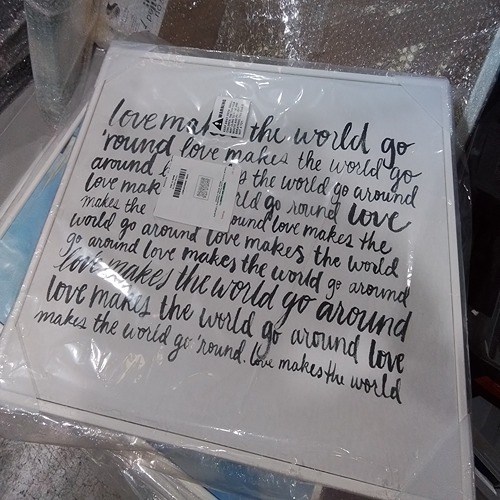 love mak the world go
'round love makes the world go
around the world go around
love mak rld go round love
makes the ound love makes the
world go around love makes the world
go around love makes the world go around
love makes the world go around
love makes the world go around love
makes the world go 'round. love makes the world
WARNING